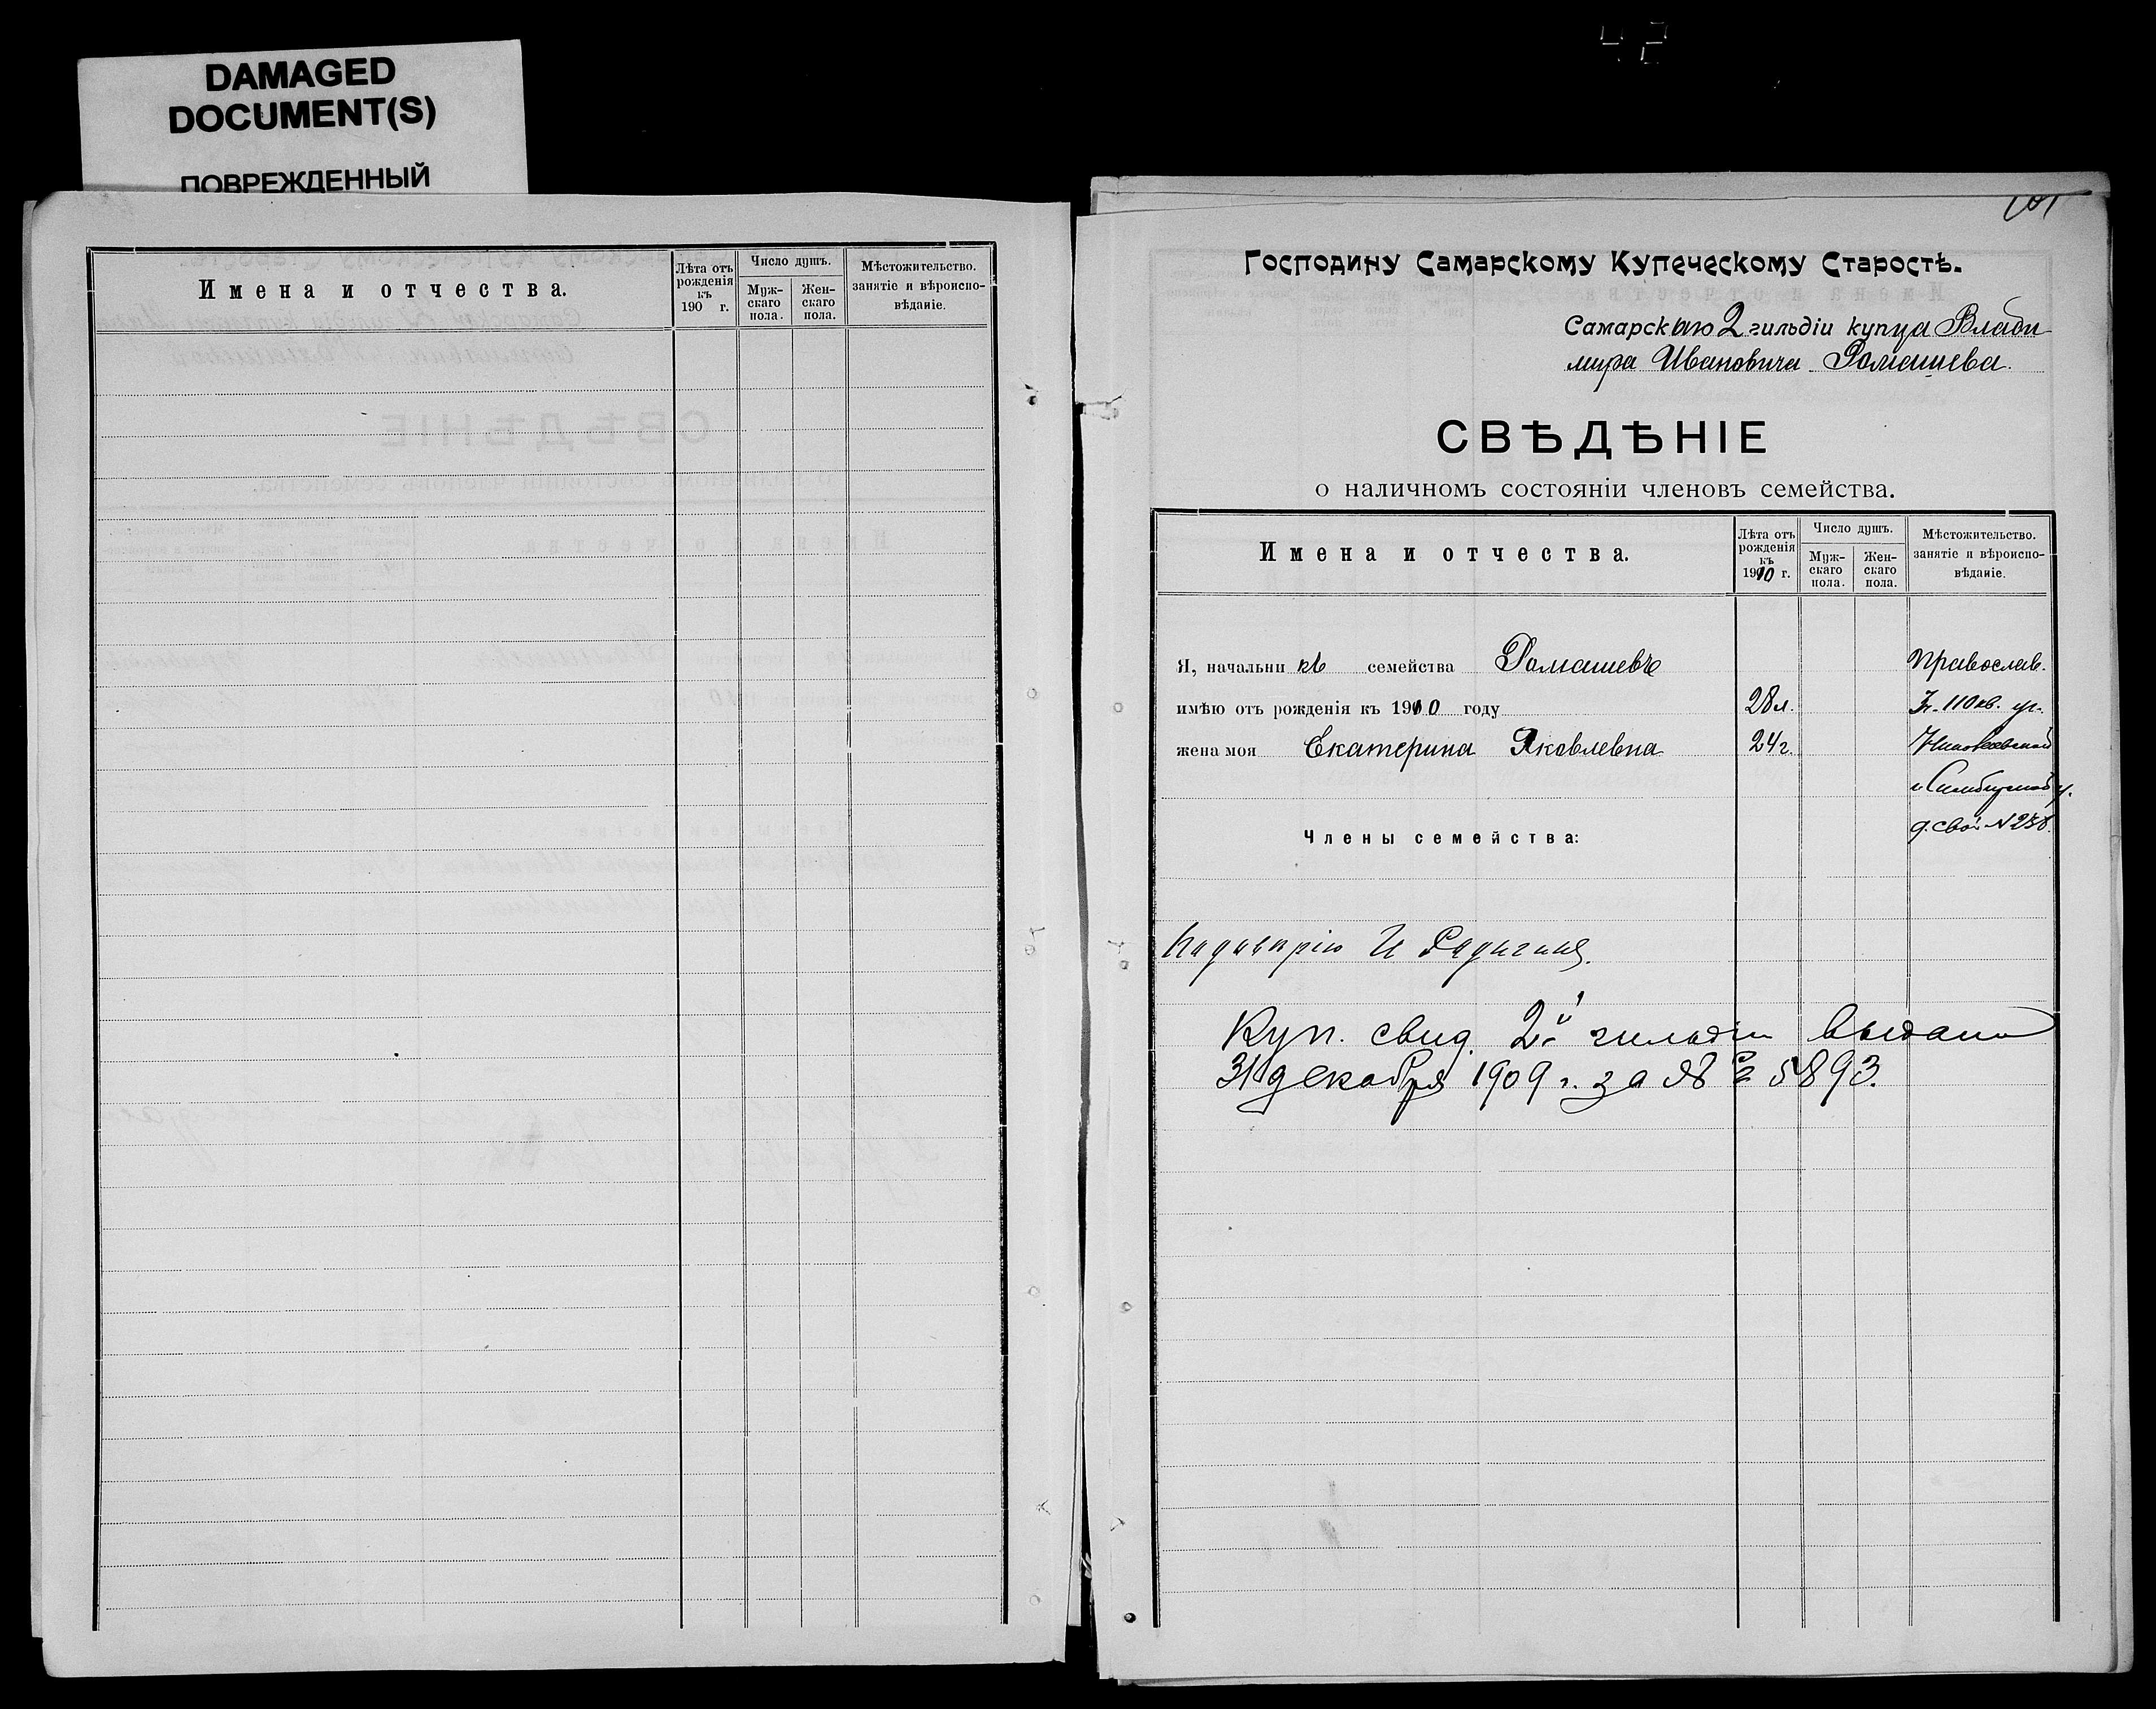 DAMAGED
DOCUMENT(S)
ПОВРЕЖДЕННЫЙ
Имена и отчества.
Лѣта отъ рожденія къ 190 г.
Число душъ.
Муж-скаго пола.
Жен-скаго пола.
Мѣстожительство. занятіе и вѣроиспо-вѣданіе.
Господину Самарскому Купеческому Старостѣ.
Самарскаго 2 гильдіи купца Влади
мира Ивановича Ромашева.
СВѢДѢНІЕ
о наличномъ состояніи членовъ семейства.
Имена и отчества.
Лѣта отъ рожденія къ 1910 г.
Число душъ.
Муж-скаго пола.
Жен-скаго пола.
Мѣстожительство. занятіе и вѣроиспо-вѣданіе.
Я, начальникъ семейства Ромашевъ
Православ.
имѣю отъ рожденія къ 1910 году 28 л.
110 кв. уг.
жена моя Екатерина Яковлевна 24 г.
и Симбирской у.
Члены семейства:
д. свой №
Куп. свид. 2й гильдіи выдано
31 декабря 1909 г. за № 5893.